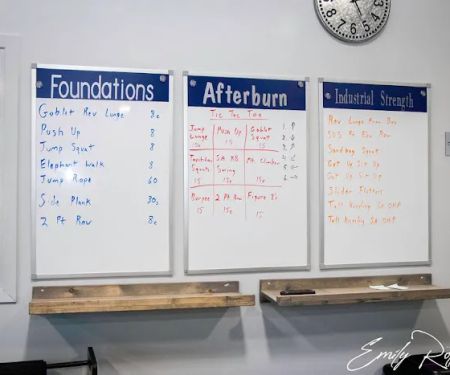 Foundations
Goblet Rev Lunge 8e
Push Up 8
Jump Squat 8
Elephant Walk 8
Jump Rope 60
Side Plank 30s
2 Pt Row 8e
Afterburn
Tic Tac Toe
Jump Lunge 15e
Push Up 15
Goblet Squat 15
Squats 15
SA KB Swing 15e
Mt. Climber 15e
Burpee 15
2 Pt Row 15e
Figure 8's 15
1.
2.
3.
4.
5.
6.
Industrial Strength
Rev Lunge
Row
Sandbag Squat
Get Up Sit Up
Get Up Sit Up
Slider
Tall Kneeling SA OHP
Tall Kneeling SA OHP
Emily